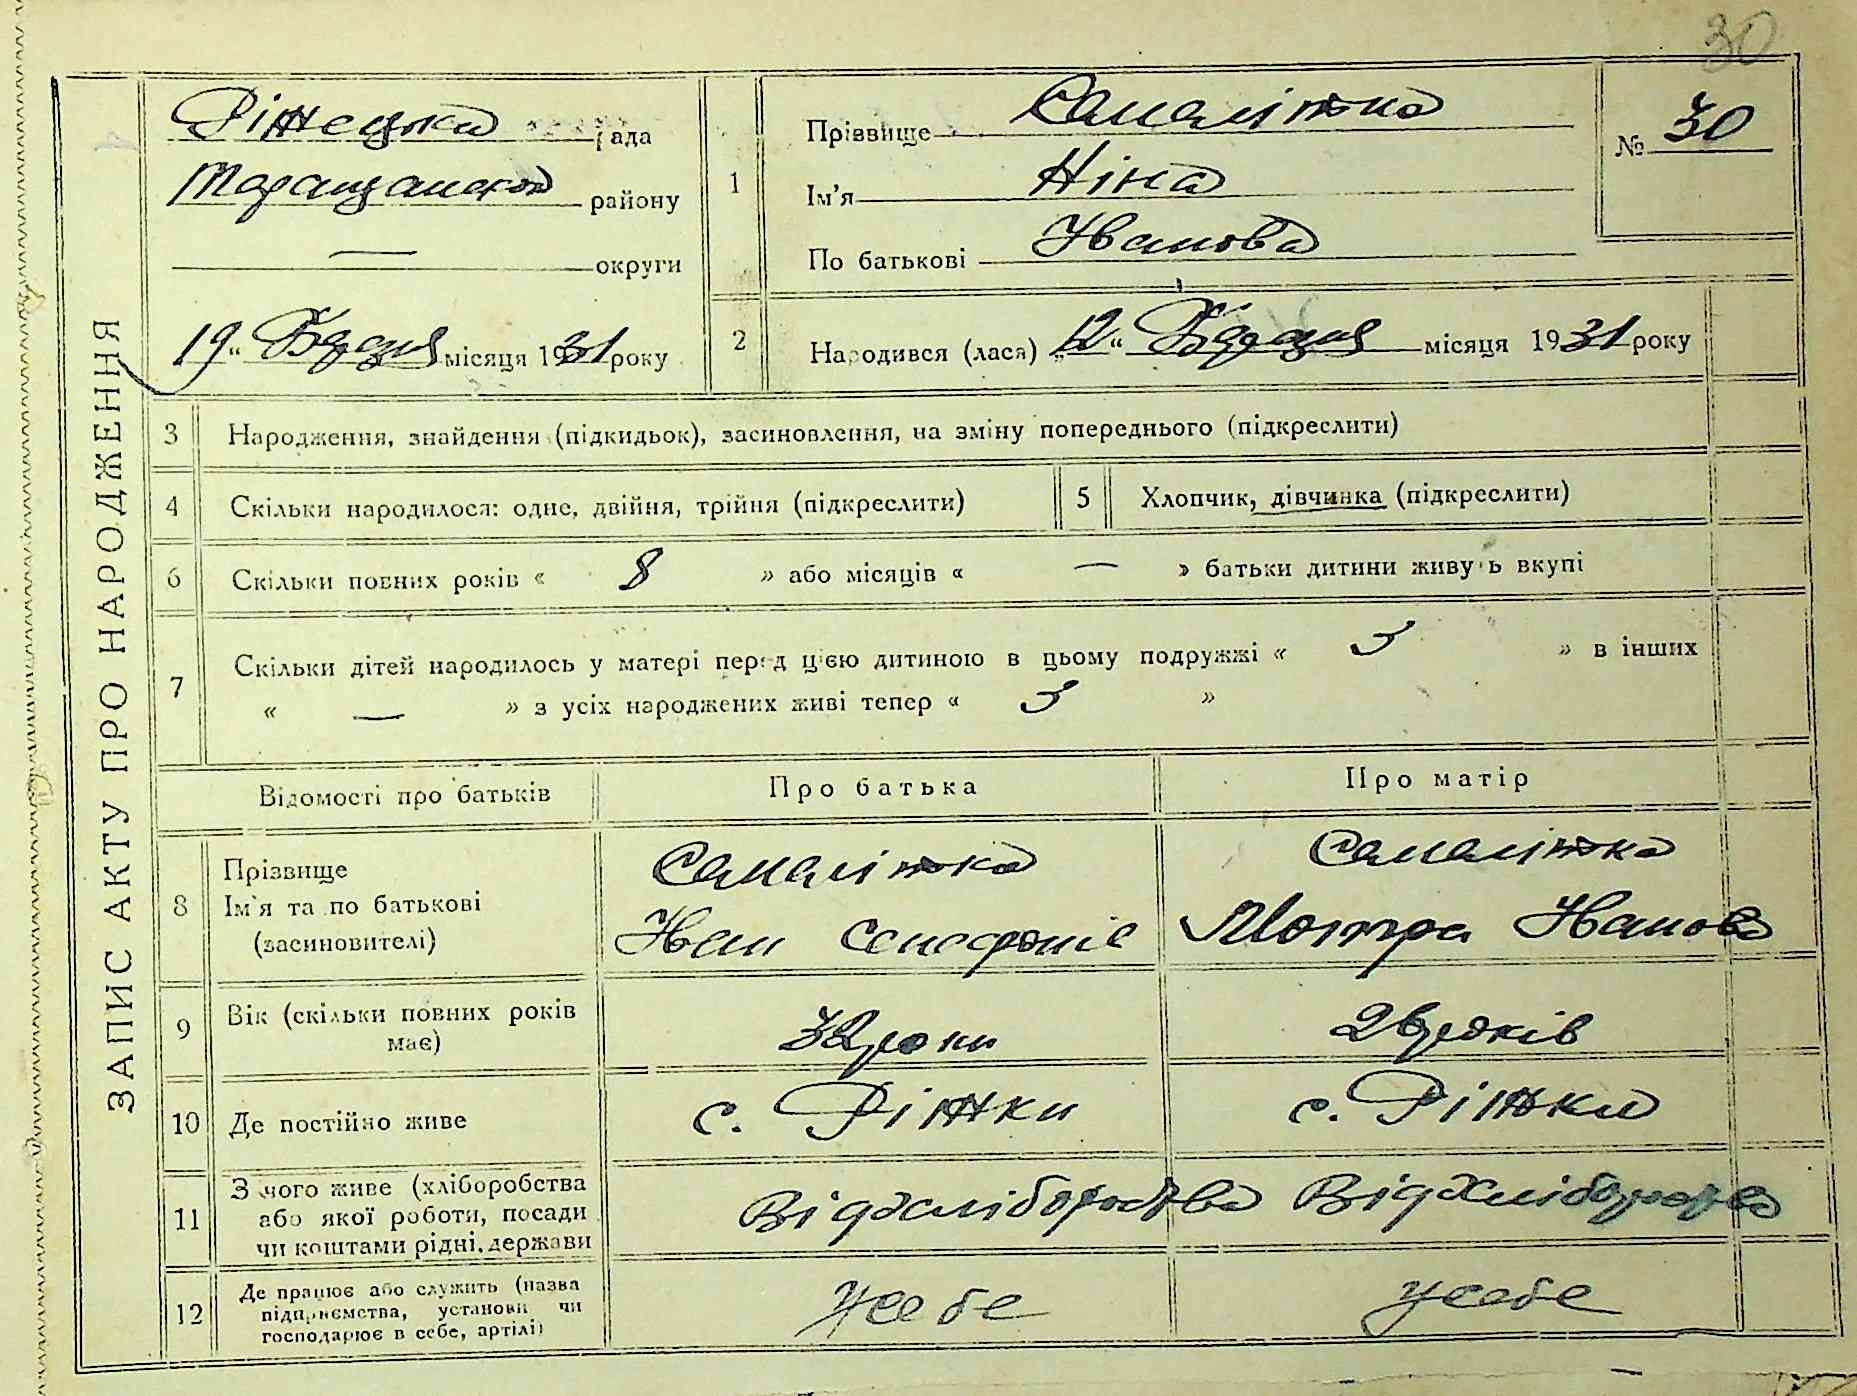 30
ЗАПИС АКТУ ПРО НАРОДЖЕННЯ
Ріжецька рада
Таращанськ району
— округи
19 „ Грудня місяця 1931 року
1
Прізвище Самалітка
Ім'я Ніна
По батькові Іванова
№ 30
2
Народився (лася) „12“ Грудня місяця 1931 року
3 Народження, знайдення (підкидьок), засиновлення, на зміну попереднього (підкреслити)
4 Скільки народилося: одне, двійня, трійня (підкреслити)
5 Хлопчик, дівчинка (підкреслити)
6 Скільки повних років « 8 » або місяців « — » батьки дитини живуть вкупі
7 Скільки дітей народилось у матері перед цією дитиною в цьому подружжі « 3 » в інших
« — » з усіх народжених живі тепер « 3 »
Відомості про батьків
Про батька
Про матір
8 Прізвище
Ім'я та по батькові
(засиновителі)
Самалітка
Иван
Самалітка
Мотра Иванова
9 Вік (скільки повних років
має)
32 роки
26 років
10 Де постійно живе
с. Ріжки
с. Ріжки
11 З чого живе (хліборобства
або якої роботи, посади
чи коштами рідні, держави
Від хліборобства
Від хліборобства
12 Де працює або служить (назва
підприємства, установи чи
господарює в себе, артілі)
У себе
У себе